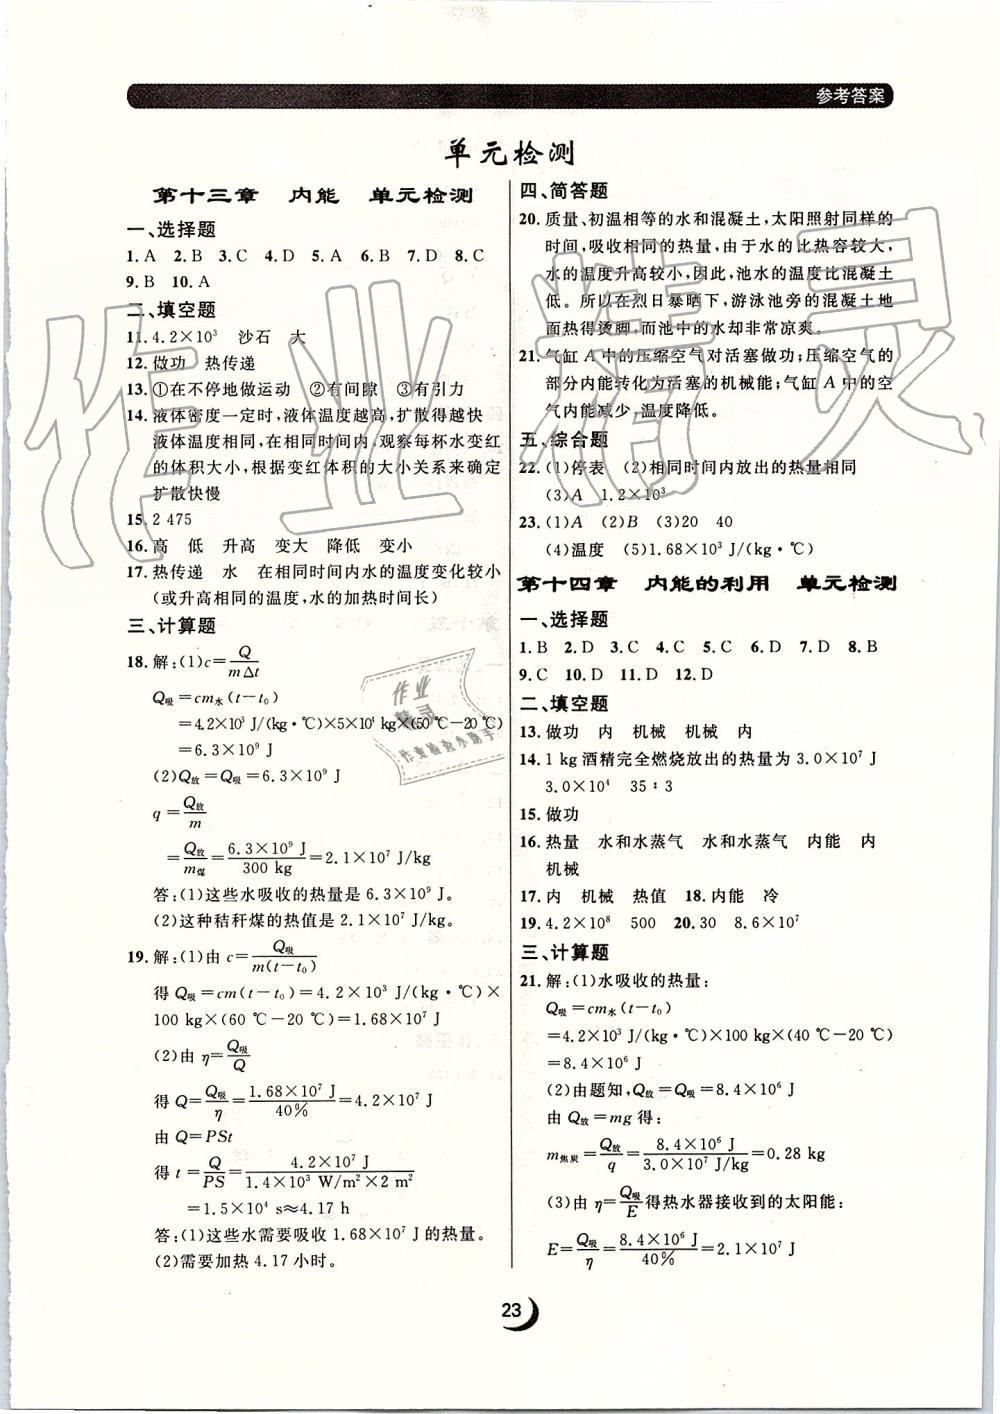 参考答案
单元检测
第十三章　内能　单元检测
一、选择题
1. A  2. B  3. C  4. D  5. A  6. B  7. D  8. C
9. B  10. A
二、填空题
11. 4.2×10³　沙石　大
12. 做功　热传递
13. ①在不停地做运动　②有间隙　③有引力
14. 液体密度一定时,液体温度越高,扩散得越快
液体温度相同,在相同时间内,观察每杯水变红
的体积大小,根据变红体积的大小关系来确定
扩散快慢
15. 2 475
16. 高　低　升高　变大　降低　变小
17. 热传递　水　在相同时间内水的温度变化较小
(或升高相同的温度,水的加热时间长)
三、计算题
18. 解:(1)c=Q/(mΔt)
Q吸=cm水(t-t₀)
=4.2×10³ J/(kg·℃)×5×10⁴ kg×(50 ℃-20 ℃)
=6.3×10⁹ J
(2)Q放=Q吸=6.3×10⁹ J
q=Q放/m
=Q放/m煤=6.3×10⁹ J/300 kg=2.1×10⁷ J/kg
答:(1)这些水吸收的热量是 6.3×10⁹ J。
(2)这种秸秆煤的热值是 2.1×10⁷ J/kg。
19. 解:(1)由 c=Q吸/m(t-t₀)
得 Q吸=cm(t-t₀)=4.2×10³ J/(kg·℃)×
100 kg×(60 ℃-20 ℃)=1.68×10⁷ J
(2)由 η=Q吸/Q
得 Q=Q吸/η=1.68×10⁷ J/40%=4.2×10⁷ J
由 Q=PSt
得 t=Q/PS=4.2×10⁷ J/1.4×10³ W/m²×2 m²
=1.5×10⁴ s≈4.17 h
答:(1)这些水需要吸收 1.68×10⁷ J 的热量。
(2)需要加热 4.17 小时。
四、简答题
20. 质量、初温相等的水和混凝土,太阳照射同样的
时间,吸收相同的热量,由于水的比热容较大,
水的温度升高较小,因此,池水的温度比混凝土
低。所以在烈日暴晒下,游泳池旁的混凝土地
面热得烫脚,而池中的水却非常凉爽。
21. 气缸 A 中的压缩空气对活塞做功;压缩空气的
部分内能转化为活塞的机械能;气缸 A 中的空
气内能减少,温度降低。
五、综合题
22. (1)停表　(2)相同时间内放出的热量相同
(3)A　1.2×10³
23. (1)A　(2)B　(3)20　40
(4)温度　(5)1.68×10³ J/(kg·℃)
第十四章　内能的利用　单元检测
一、选择题
1. B  2. D  3. D  4. C  5. B  6. D  7. D  8. B
9. C  10. D  11. D  12. D
二、填空题
13. 做功　内　机械　机械　内
14. 1 kg 酒精完全燃烧放出的热量为 3.0×10⁷ J
3.0×10⁴　35∶3
15. 做功
16. 热量　水和水蒸气　水和水蒸气　内能　内
机械
17. 内　机械　热值　18. 内能　冷
19. 4.2×10⁸　500　20. 30　8.6×10⁷
三、计算题
21. 解:(1)水吸收的热量:
Q吸=cm水(t-t₀)
=4.2×10³ J/(kg·℃)×100 kg×(40 ℃-20 ℃)
=8.4×10⁶ J
(2)由题知,Q放=Q吸=8.4×10⁶ J
由 Q放=mg 得:
m焦炭=Q放/q=8.4×10⁶ J/3.0×10⁷ J/kg=0.28 kg
(3)由 η=Q吸/E得热水器接收到的太阳能:
E=Q吸/η=8.4×10⁶ J/40%=2.1×10⁷ J
23
作业精灵
作业
精灵
作业检查小助手